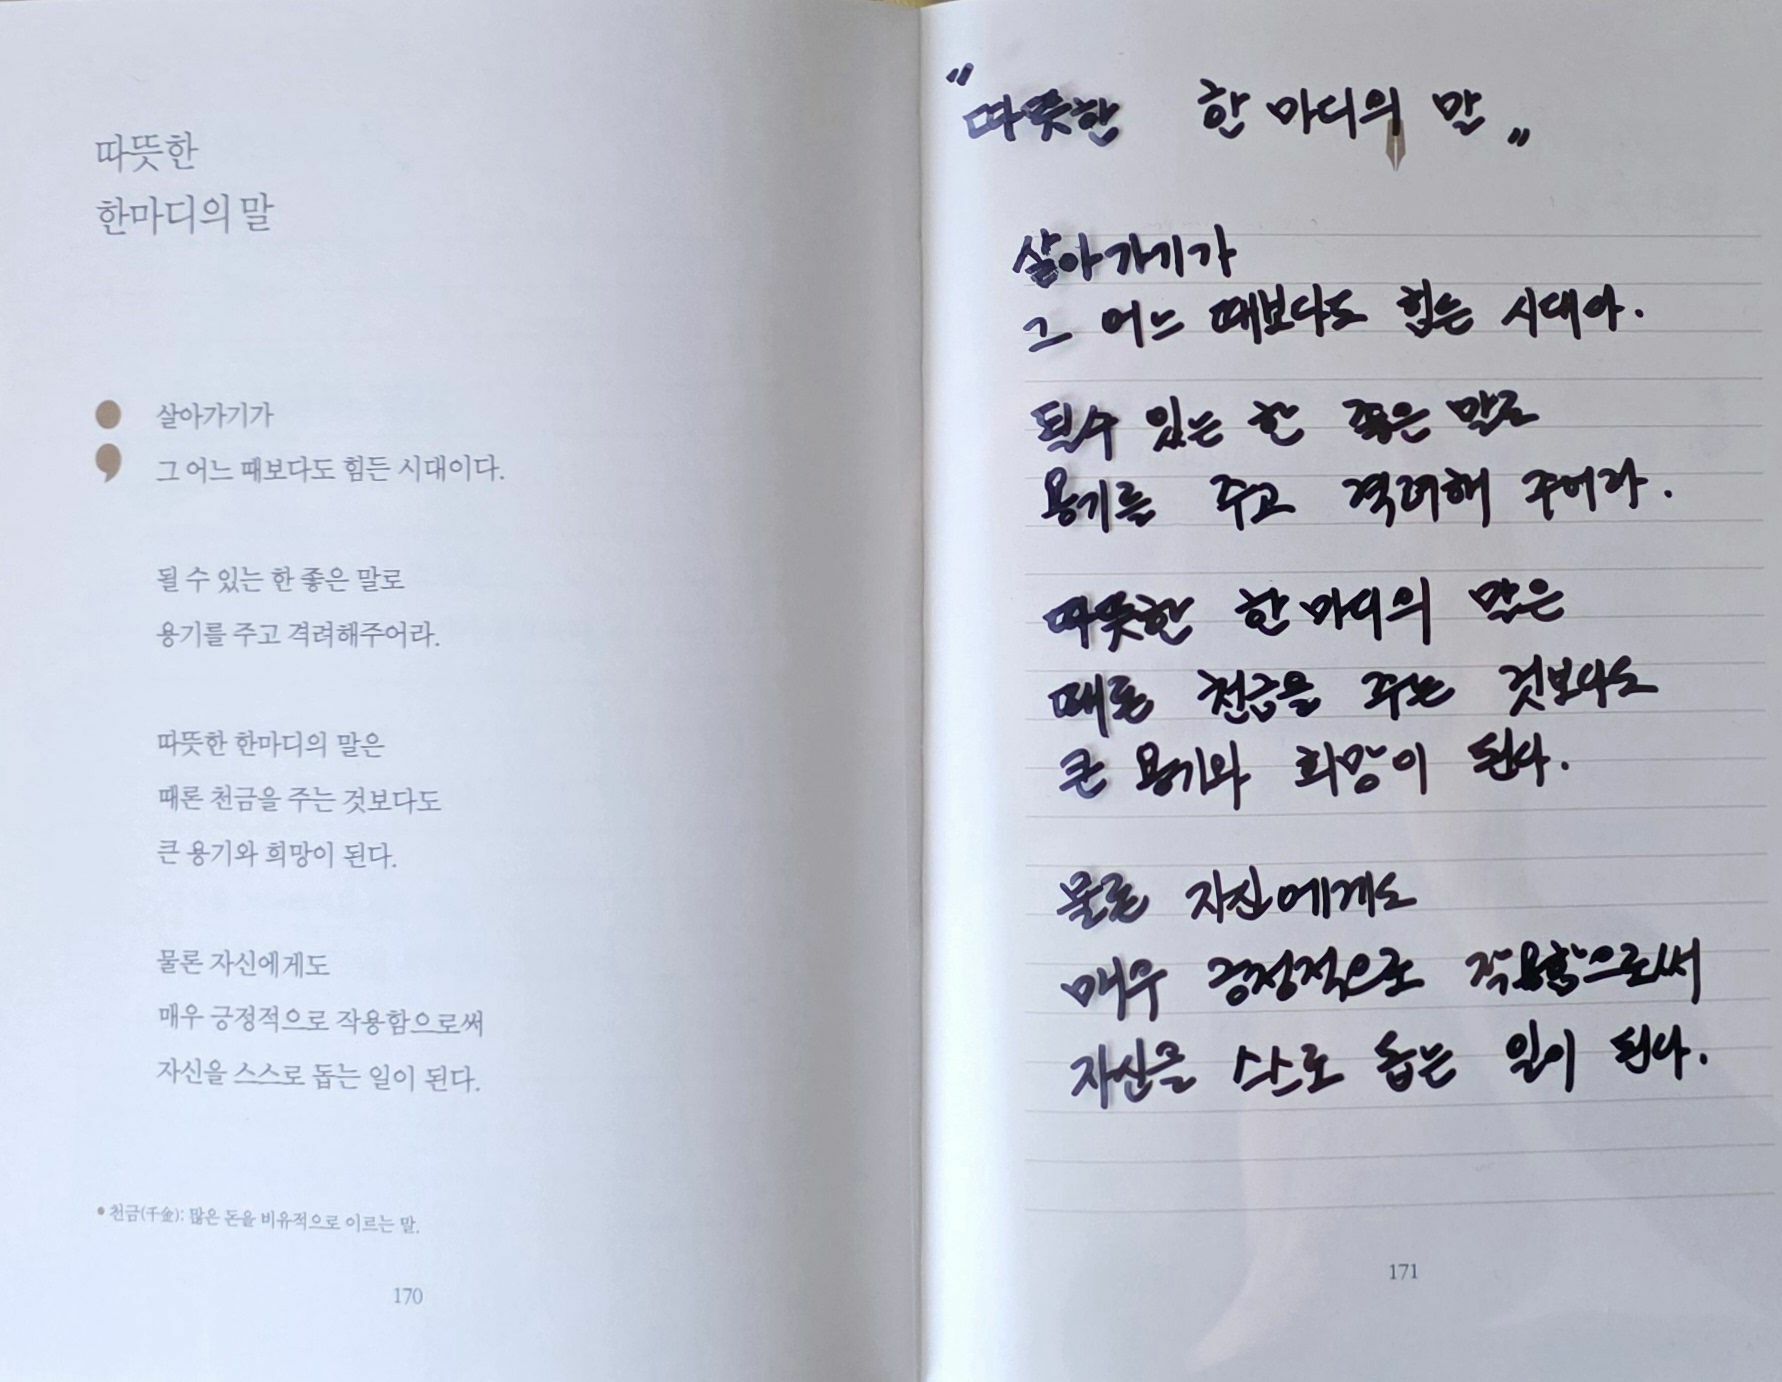 따뜻한
한마디의 말
살아가기가
그 어느 때보다도 힘든 시대이다.
될 수 있는 한 좋은 말로
용기를 주고 격려해주어라.
따뜻한 한마디의 말은
때론 천금을 주는 것보다도
큰 용기와 희망이 된다.
물론 자신에게도
매우 긍정적으로 작용함으로써
자신을 스스로 돕는 일이 된다.
• 천금(千金): 많은 돈을 비유적으로 이르는 말.
170
"따뜻한 한마디의 말"
살아가기가
그 어느 때보다도 힘든 시대야.
될 수 있는 한 좋은 말로
용기를 주고 격려해 주어라.
따뜻한 한마디의 말은
때론 천금을 주는 것보다도
큰 용기와 희망이 된다.
물론 자신에게도
매우 긍정적으로 작용함으로써
자신을 스스로 돕는 일이 된다.
171